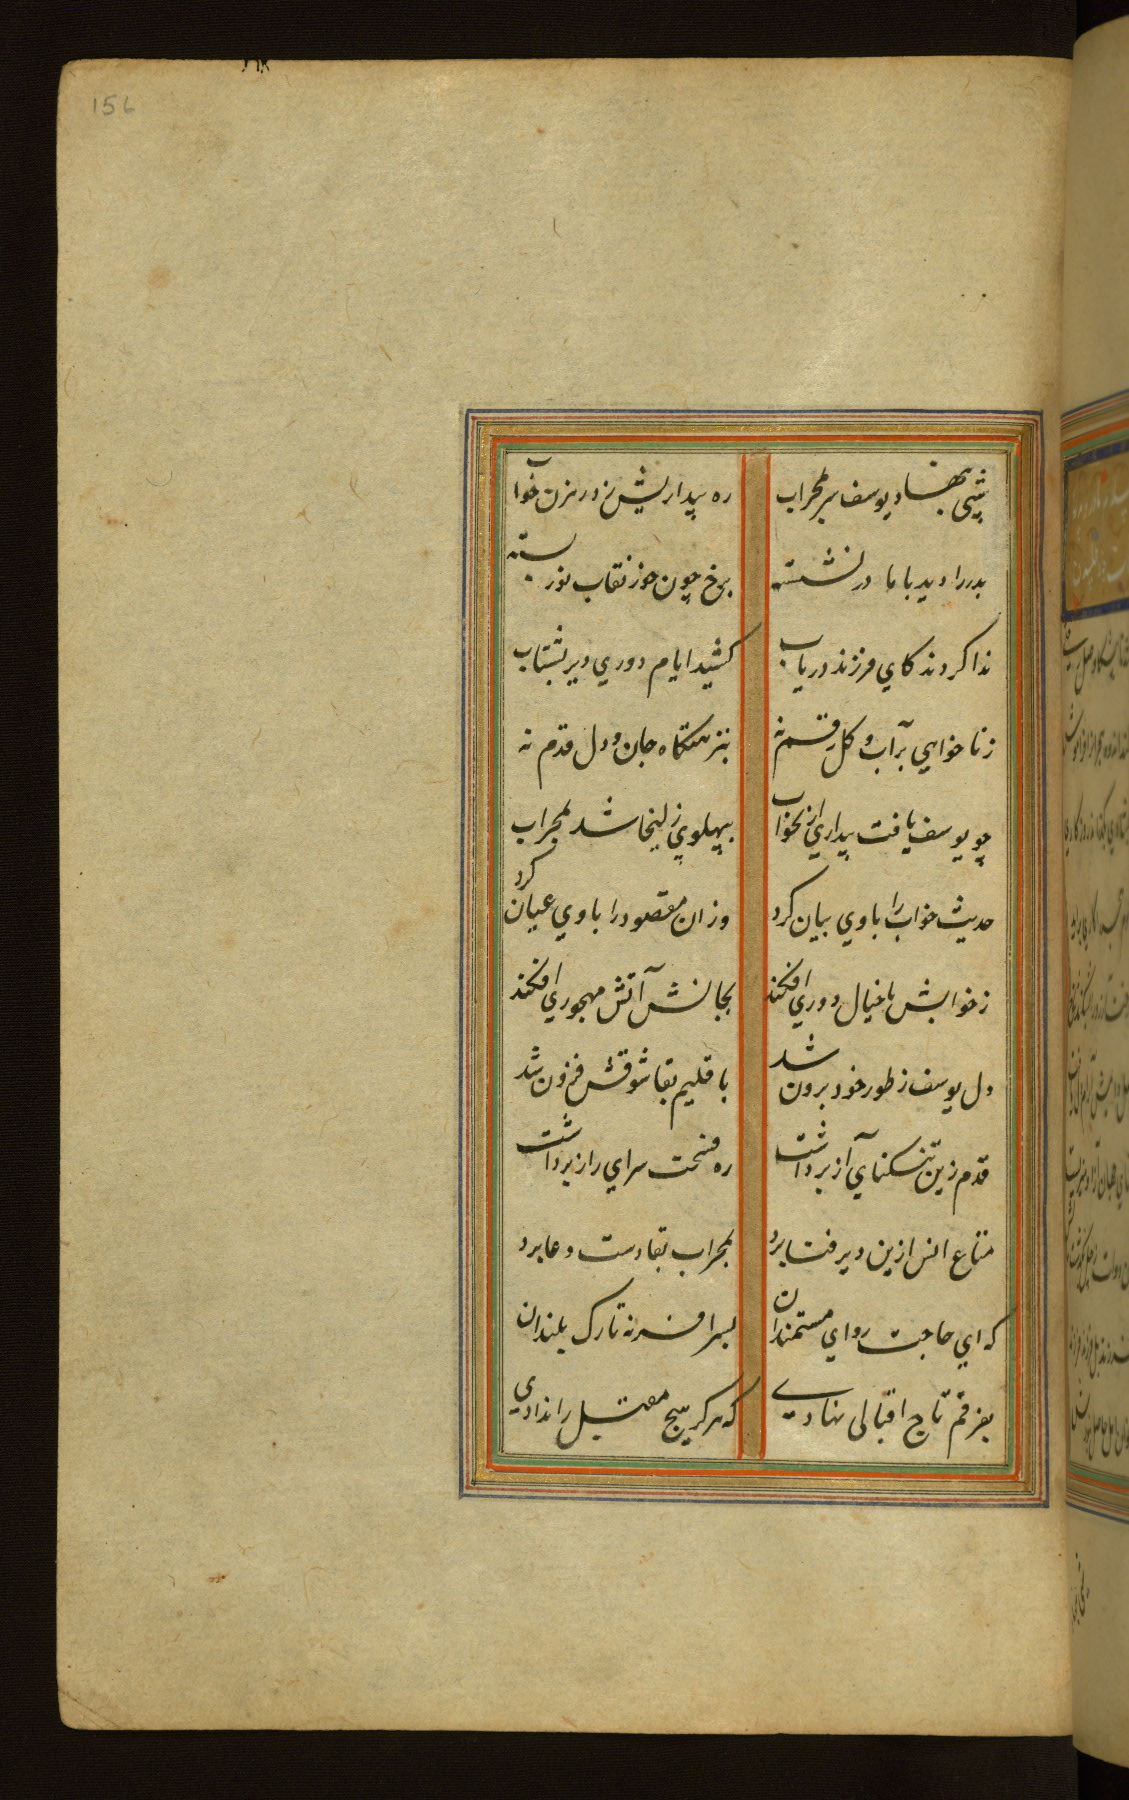 156
شبی بنهاد یوسف سر بمحراب
ره بیداریش زد رهزن خواب
پدر را دید با مادر نشسته
برخ چون خور نقاب نور بسته
ندا کردند کای فرزند دریاب
کشید ایام دوری دیر بشتاب
زنا خواهی بر آب و کل رقم نه
بنزهتکاه جان و دل قدم نه
چو یوسف یافت بیداری از ان خواب
بپهلوی زلیخا شد بمحراب
حدیث خواب را باوی بیان کرد
وزان مقصود را باوی عیان کرد
ز خوابش با خیال دوری افکند
بجانش آتش مهجوری افکند
دل یوسف ز طور خود برون شد
باقلیم بقا شوقش فزون شد
قدم زین تنکنای آز برداشت
ره فسحت سرای راز برداشت
متاع انس ازین دیر فنا برد
بمحراب بقا دست دعا برد
که ای حاجت روای مستمندان
بسر افسر نه تارک بلندان
بفرقم تاج اقبالی نهادی
که هرکز هیچ مقبل را ندادی